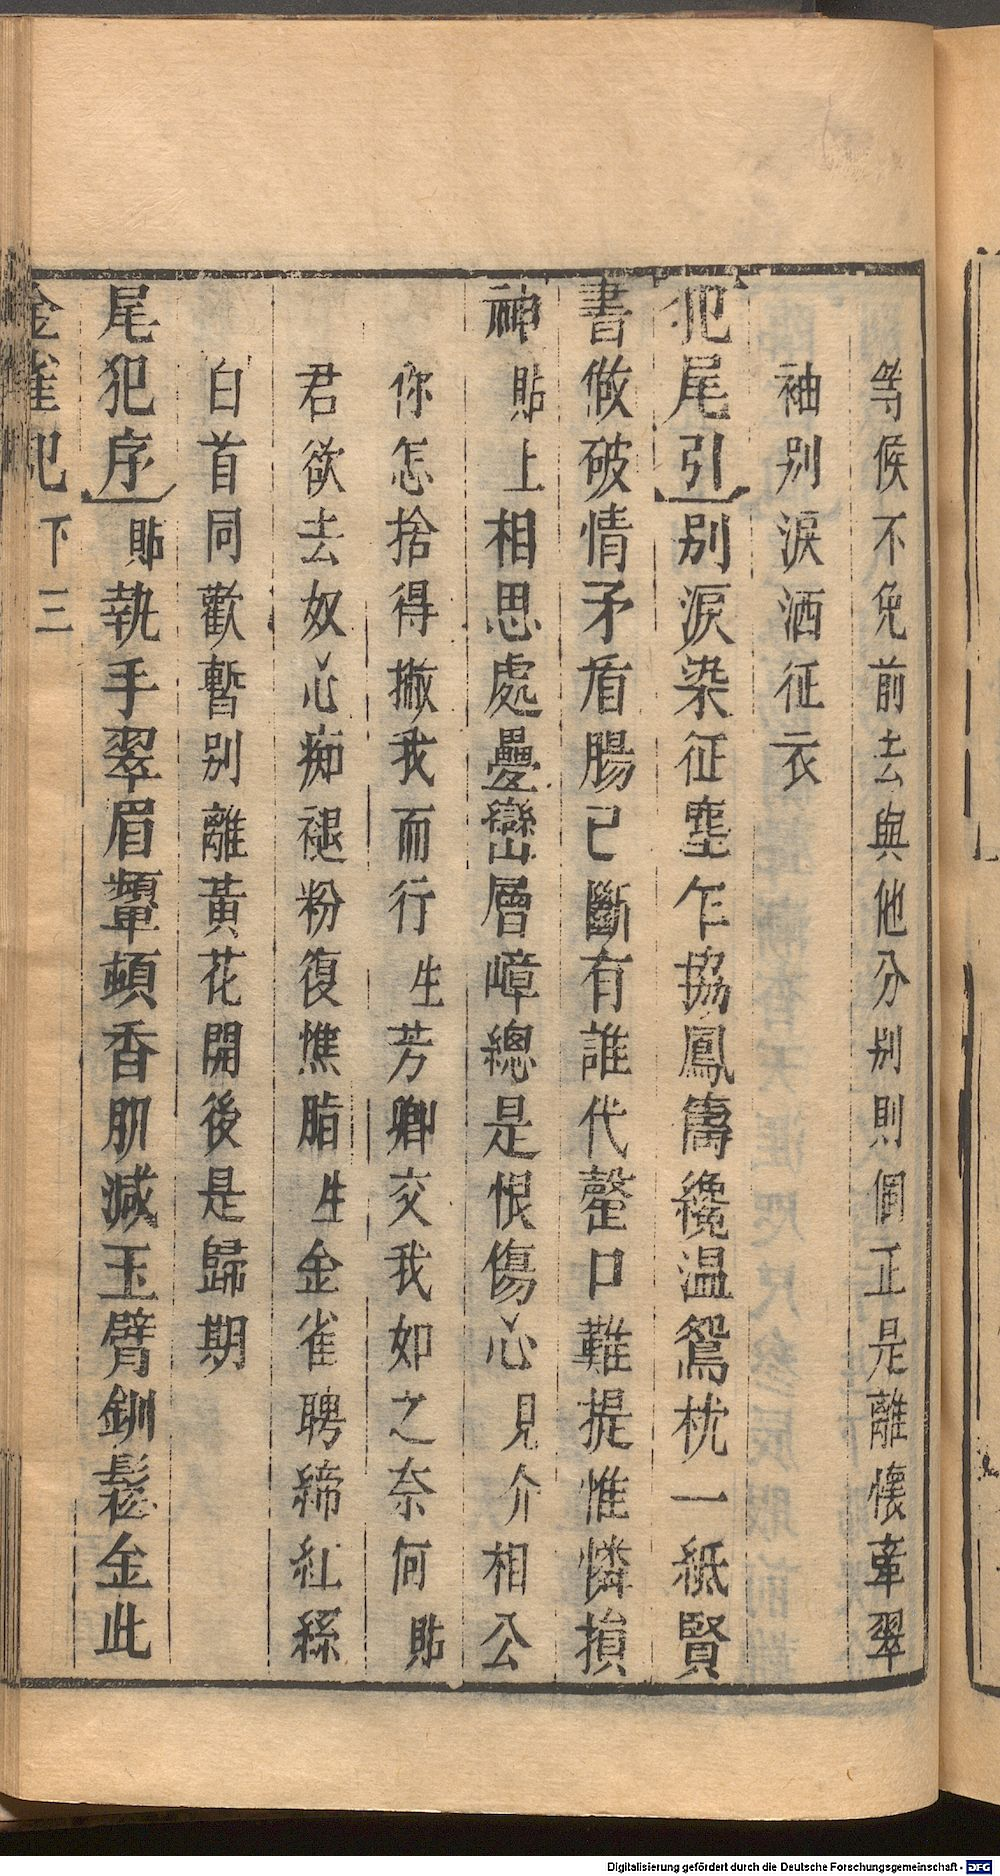 等候不免前去與他分別則個正是離懷牽翠
袖別淚洒征衣
犯尾引別淚染征塵乍協鳳儔纔温鴛枕一紙賢
書做破情矛盾腸已斷有誰代罄口難提惟憐損
神貼上相思處疊巒層嶂總是恨傷心見介相公
你怎捨得撇我而行生芳卿交我如之奈何貼
君欲去奴心痴褪粉復憔脂生金雀聘締紅絲
白首同歡暫別離黃花開後是歸期
尾犯序貼執手翠眉顰頓香肌減玉臂釧鬆金此
金雀記 下 三
Digitalisierung gefördert durch die Deutsche Forschungsgemeinschaft - DFG